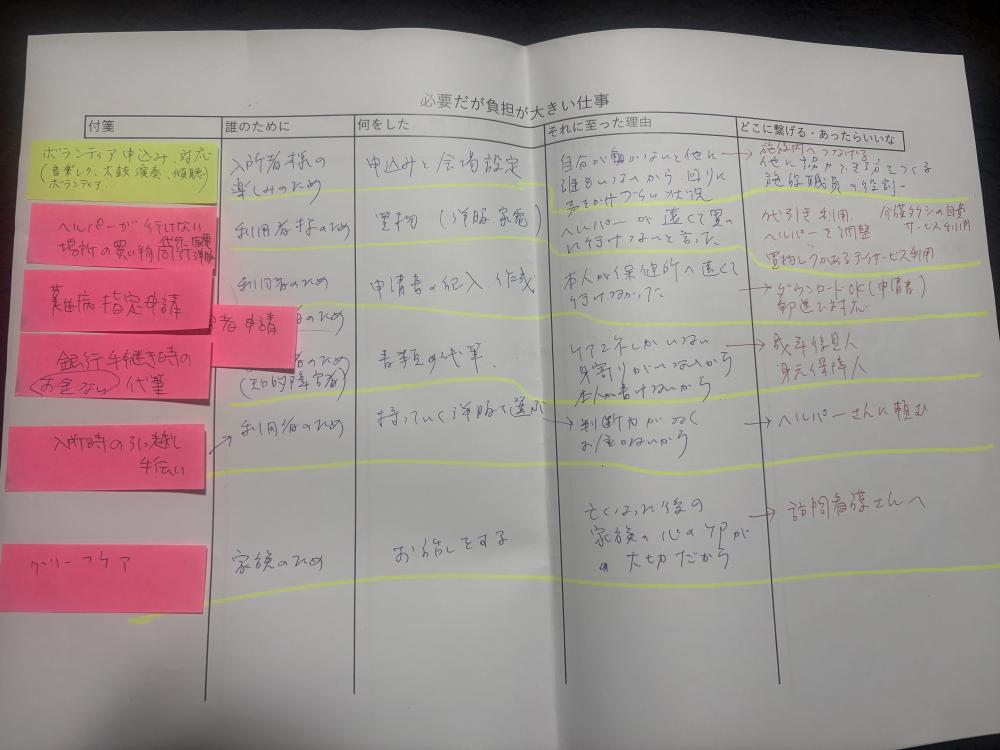 必要だが負担が大きい仕事
付箋
誰のために
何をした
それに至った理由
どこに繋げる・あったらいいな
ボランティア申込み、対応
(音楽レク、太鼓演奏、傾聴
ボランティア…
入所者様の
楽しみのため
申込みと会場設定
自分が動かないと他に
誰もいないから 回りに
声をかけづらい状況
→施設内へつなげる
他に協力する方をつくる
施設職員の役割→
ヘルパーが行けない
場所の買い物
家電
洋服
利用者様のため
買物 (洋服、家電)
ヘルパーが遠くて買い
に行けないと言った
代引き利用
ヘルパーを調整
買物レクがあるデイサービス利用
介護タクシーの自費
サービス利用
難病指定申請
利用者のため
申請書の記入、作成
本人が保健所へ遠くて
行けなかった
→ダウンロードOK(申請書)
郵送で対応
者申請
のため
銀行手続き時の
お金ない 代筆
者のため
(知的障害者)
書類の代筆
ケアマネしかいない
身寄りがいないから
本人が書けないから
→成年後見人
身元保障人
入所時の引っ越し
手伝い
利用者のため
持っていく洋服を選ぶ
→判断力がなく
お金のないから
→ヘルパーさんに頼む
グリーフケア
家族のため
お話しをする
亡くなった後の
家族の心のケアが
大切だから
→訪問看護さんへ